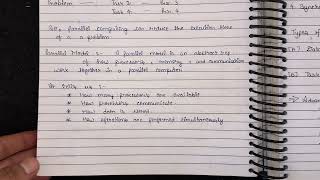 Problem — Task 2 — Pro. 3
Task 4 Pro. 4
So, parallel computing can reduce the execution time
of a a problem
Parallel Model :- A parallel model is an abstract rep
of how processors, memory & and communication
work together in a parallel computer
It tells us :-
* How many processors are available
* How processors communicate
* How data is
* How operations are performed simultaneously
4 Syncr
Types of
[a] Data
→ Advan